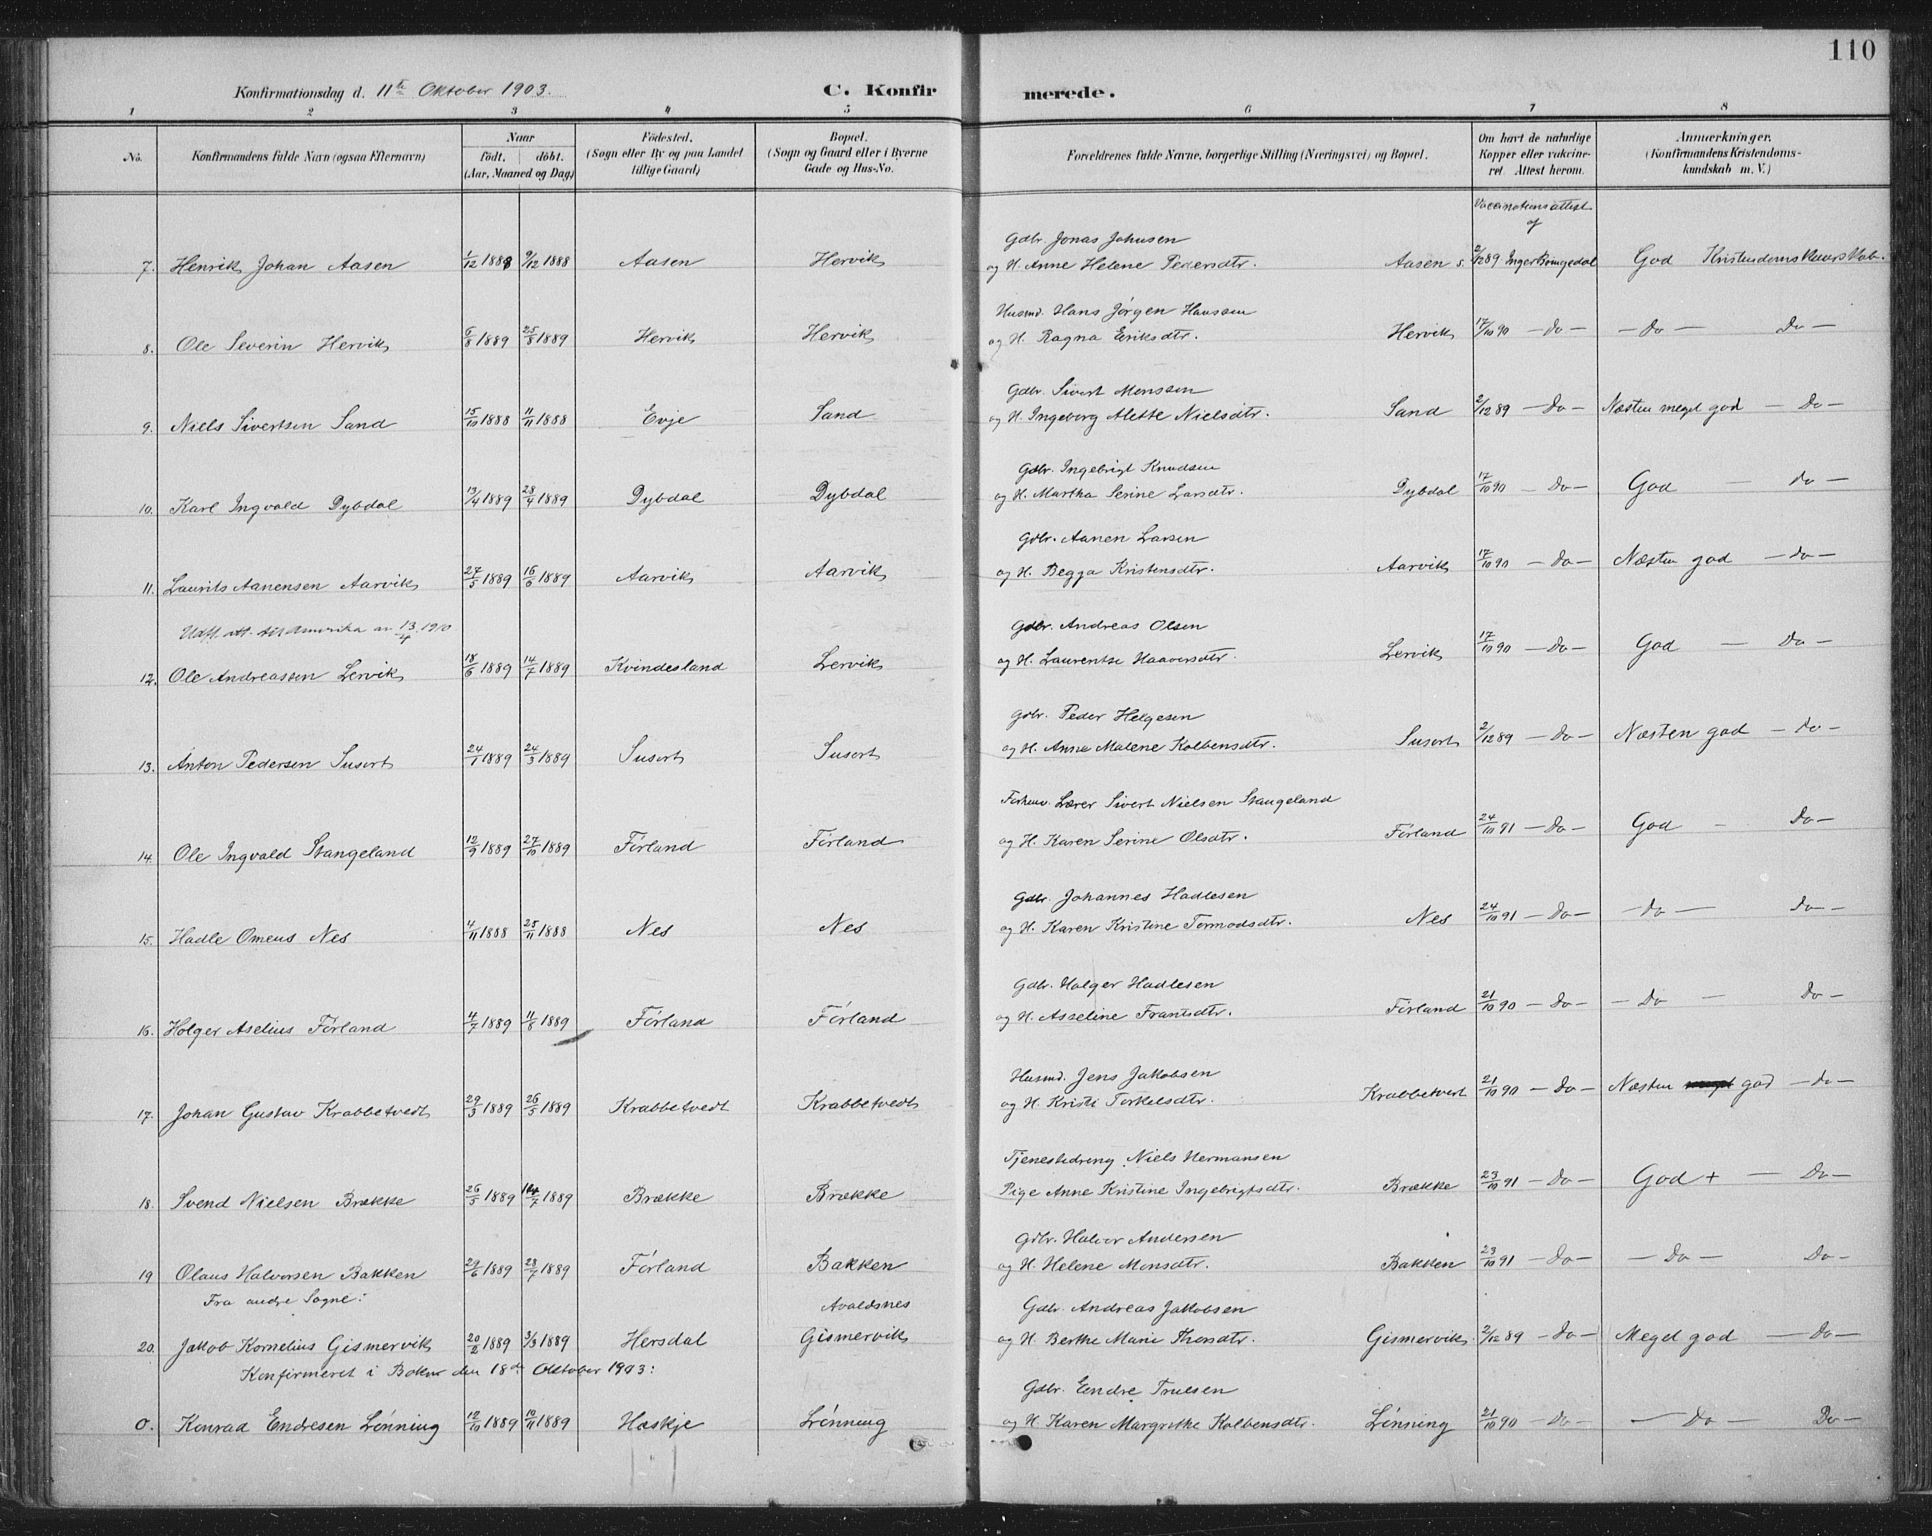 110
Konfirmationsdag d. 11te Oktober 1903. C. Konfirmerede.
1 2 3 4 5 6 7 8
No. Konfirmandens fulde Navn (ogsaa Efternavn) Naar födt. döbt. (Aar, Maaned og Dag) Födested. (Sogn eller By og paa Landet tillige Gaard) Bopæl. (Sogn og Gaard eller i Byerne Gade og Hus-No. Forældrenes fulde Navne, borgerlige Stilling (Næringsvei) og Bopæl. Om havt de naturlige Kopper eller vakcineret. Attest herom. Anmærkninger. (Konfirmandens Kristendomskundskab m. V.)
Vaccinationsattest af
Gdbr. Jonas Johnsen
7. Henrik Johan Aasen 1/12 1888 9/12 1888 Aasen Hervik og H. Anne Helene Pedersdtr. Aasen s. 2/12 89 Inger God Kristendomskundskab.
Husmd. Hans Jörgen Hanssen
8. Ole Severin Hervik 6/8 1889 25/8 1889 Hervik Hervik og H. Ragna Eriksdtr. Hervik 17/10 90 — Do — — Do — Do —
Gdbr. Sivert Monssen
9. Niels Sivertsen Sand 15/10 1888 11/11 1888 Evje Sand og H. Ingeborg Alette Nielsdtr. Sand 2/12 89 — Do — Næsten meget god — Do —
Gdbr. Ingebrigt Knudsen
10. Karl Ingvald Dybdal 13/4 1889 28/4 1889 Dybdal Dybdal og H. Martha Serine Larsdtr. Dybdal 17/10 90 — Do — God — Do —
Gdbr. Aanen Larsen
11. Laurits Aanensen Aarvik 27/5 1889 16/6 1889 Aarvik Aarvik og H. Begga Kristensdtr. Aarvik 17/10 90 — Do — Næsten god — Do —
Udfl. att. til Amerika av 13/4 1910
Gdbr. Andreas Olsen
12. Ole Andreassen Lervik 18/6 1889 14/7 1889 Kvindesland Lervik og H. Laurentse Haaversdtr. Lervik 17/10 90 — Do — God — Do —
Gdbr. Peder Helgesen
13. Anton Pedersen Susort 24/1 1889 24/3 1889 Susort Susort og H. Anna Malene Kolbensdtr. Susort 2/12 89 — Do — Næsten god — Do —
Forhenv. Lærer Sivert Nielsen Stangeland
14. Ole Ingvald Stangeland 12/9 1889 27/10 1889 Förland Förland og H. Karen Serine Olsdtr. Förland 24/10 91 — Do — God — Do —
Gdbr. Johannes Hadlesen
15. Hadle Omeus Nes 4/11 1888 25/11 1888 Nes Nes og H. Karen Kristine Tormodsdtr. Nes 24/10 91 — Do — — Do — Do —
Gdbr. Holger Hadlesen
16. Holger Aselius Förland 4/7 1889 11/8 1889 Förland Förland og H. Asseline Frantsdtr. Förland 21/10 90 — Do — — Do — Do —
Husmd. Jens Jakobsen
17. Johan Gustav Krabbetvedt 29/3 1889 26/5 1889 Krabbetvedt Krabbetvedt og H. Kristi Torkelsdtr. Krabbetvert 21/10 90 — Do — Næsten god — Do —
Tjenestedreng Niels Hermansen
18. Svend Nielsen Brække 26/5 1889 14/7 1889 Brække Brække Pige Anne Kristine Ingebrigtsdtr. Brække 23/10 91 — Do — God + — Do —
Gdbr. Halvor Andersen
19 Olaus Halvorsen Bakken 29/6 1889 28/7 1889 Förland Bakken og H. Helene Monsdtr. Bakken 23/10 91 — Do — — Do — Do —
Fra andre Sogne: Avaldsnes Gdbr. Andreas Jakobsen
20. Jakob Kornelius Gismervik 20/2 1889 3/3 1889 Hersdal Gismervik og H. Berthe Marie Thorsdtr. Gismervik 2/12 89 — Do — Meget god — Do —
Konfirmeret i Bokn den 18de Oktober 1903:
Gdbr. Endre Truesen
0. Konrad Endresen Lönning 12/10 1889 10/11 1889 Hæskje Lönning og H. Karen Margrethe Kolbensdtr. Lönning 21/10 90 — Do — — Do — Do —